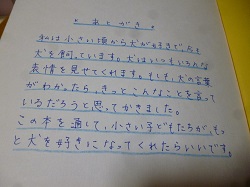 。あとがき。
私は小さい頃から犬が好きで、今も
犬を飼っています。犬はいつもいろんな
表情を見せてくれます。もしも、犬の言葉
がわかったら、きっとこんなことを言って
いるだろうと思ってかきました。
この本を通して、小さい子どもたちが、もっ
と犬を好きになってくれたらいいです。